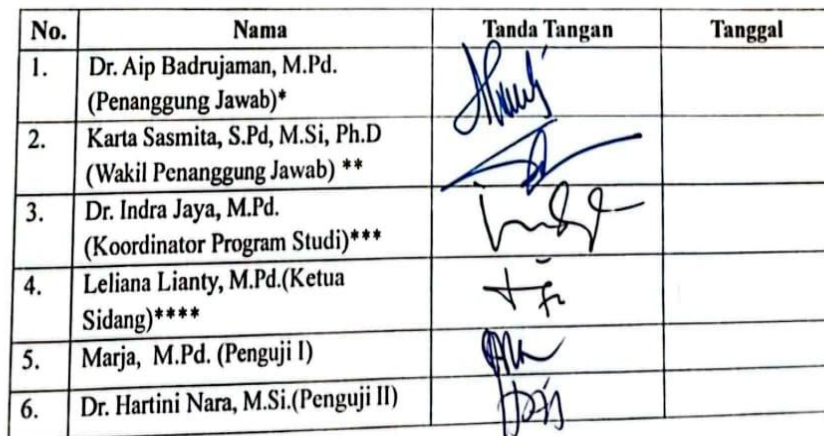 No. Nama Tanda Tangan Tanggal
1. Dr. Aip Badrujaman, M.Pd.
(Penanggung Jawab)*
2. Karta Sasmita, S.Pd, M.Si, Ph.D
(Wakil Penanggung Jawab) **
3. Dr. Indra Jaya, M.Pd.
(Koordinator Program Studi)***
4. Leliana Lianty, M.Pd.(Ketua
Sidang)****
5. Marja, M.Pd. (Penguji I)
6. Dr. Hartini Nara, M.Si.(Penguji II)